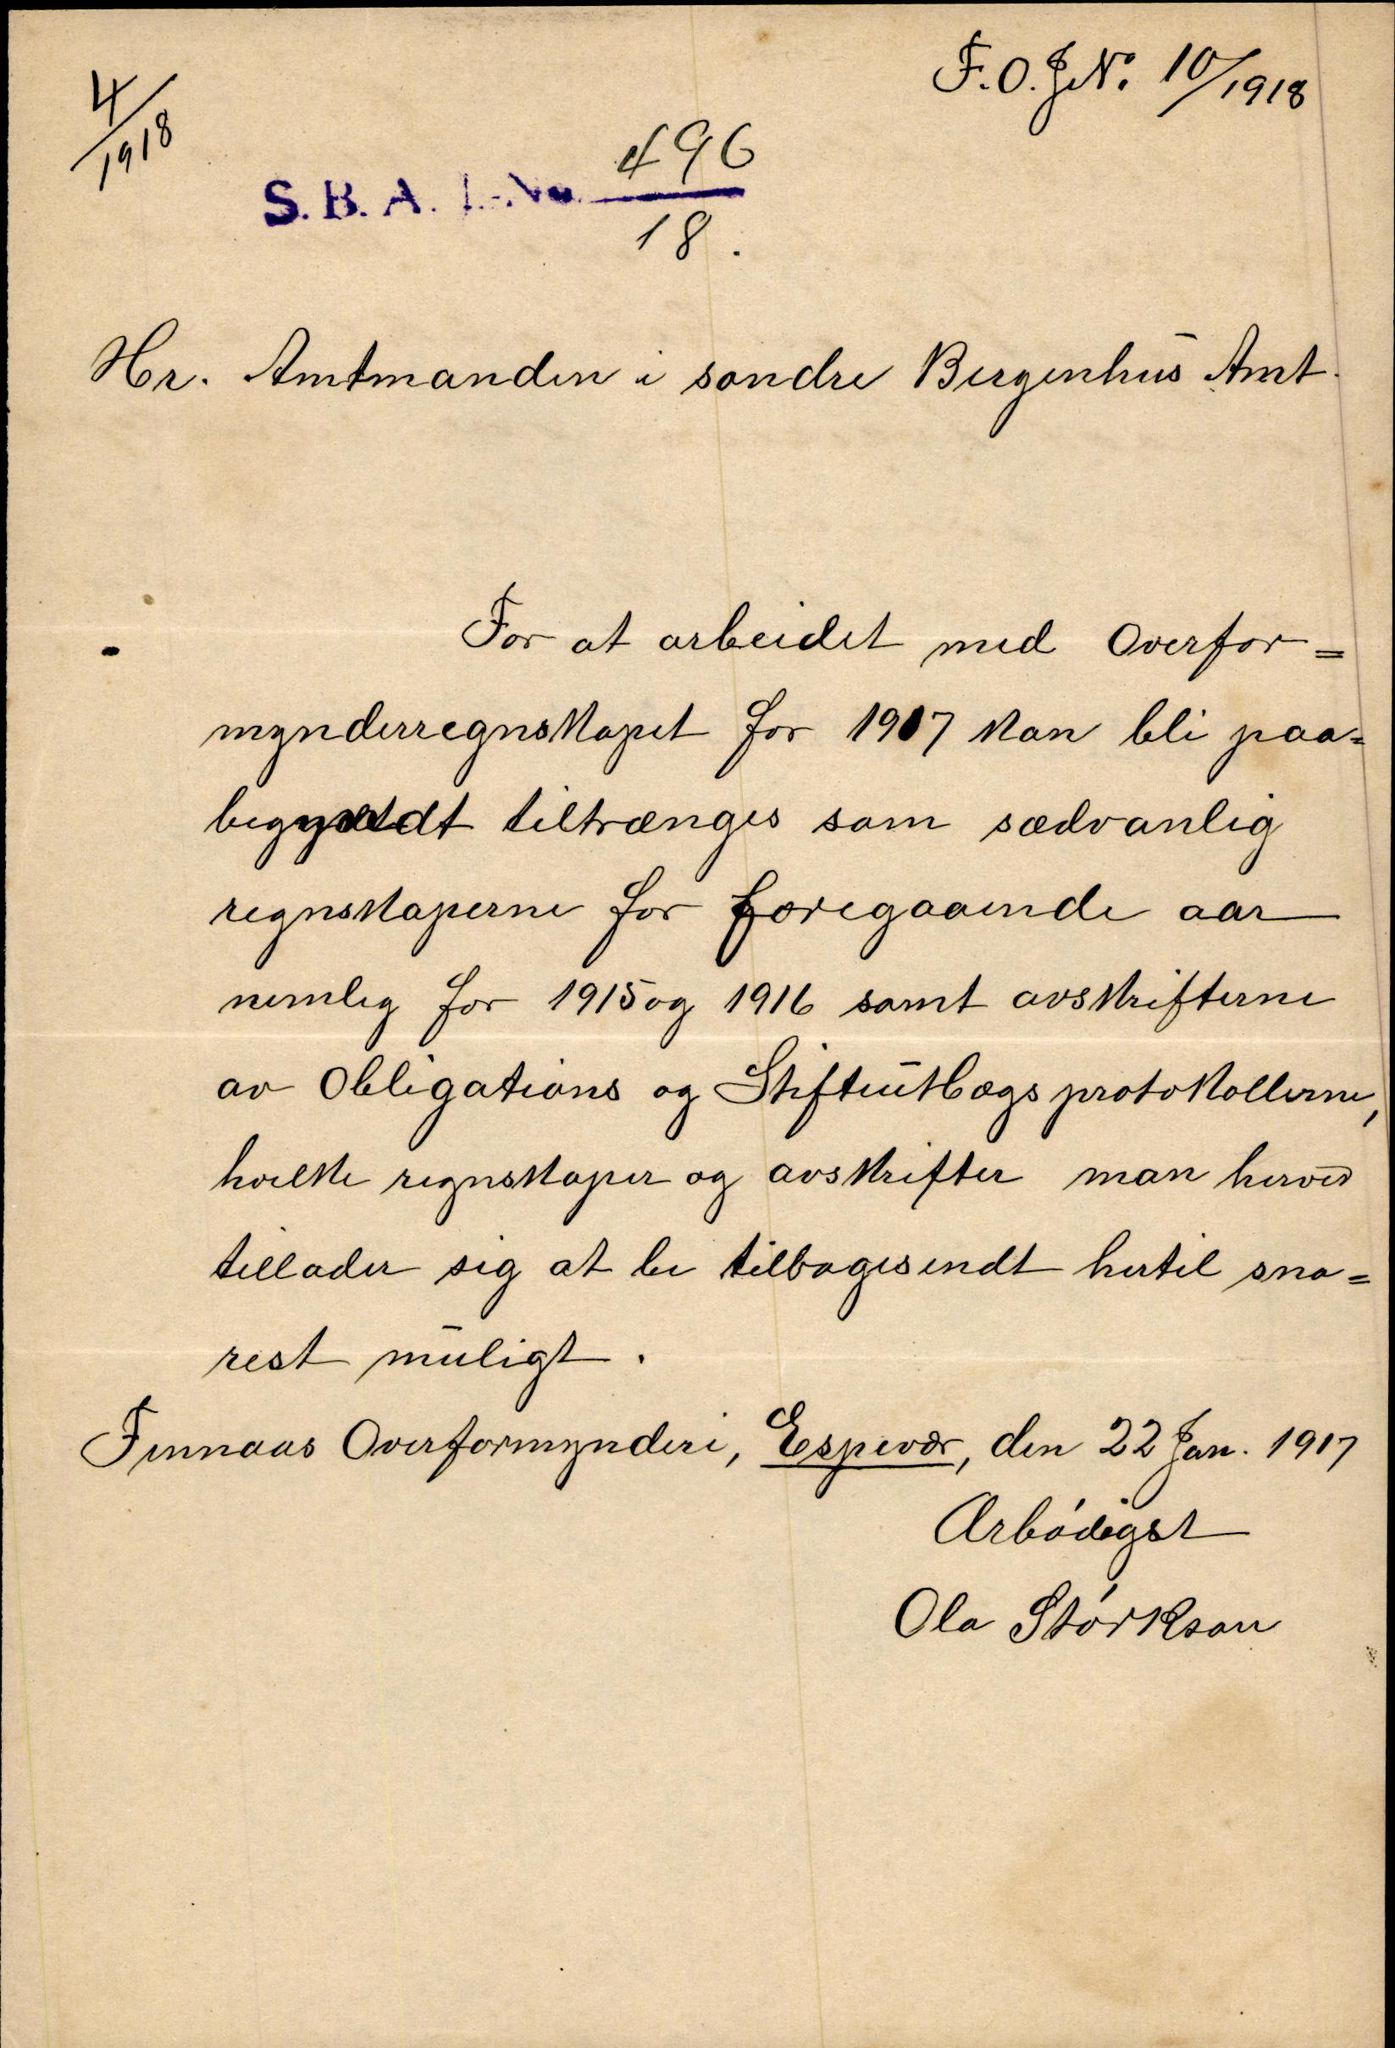 F.O.J.No. 10/1918
4/1918
S.B.A. J.-No. 496
18.
Hr. Amtmanden i søndre Bergenhus Amt.
For at arbeidet med Overfor=
mynderregnskapet for 1917 kan bli paa=
begyndt tiltrænges som sædvanlig
regnskaperne for foregaaende aar
nemlig for 1915 og 1916 samt avskrifterne
av Obligations og Skifteutlægs protokollerne,
hvilke regnskaper og avskrifter man herved
tillader sig at be tilbagesendt hertil sna=
rest muligt.
Finnaas Overformynderi, Espevær, den 22 Jan. 1917
Ærbødigst
Ola Størkson